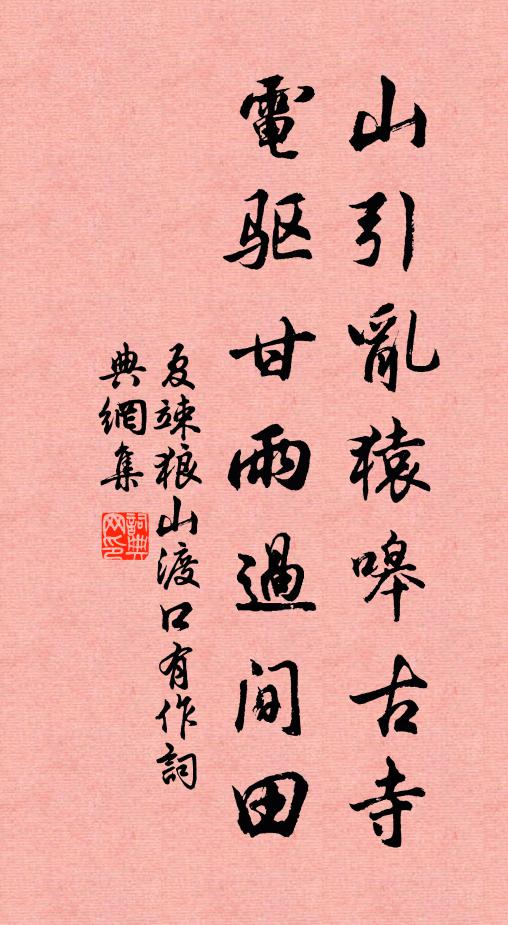 山引亂猿嗥古寺
電驱甘雨過間田
夏竦狼山渡口有作詞
典網集
詞典
网印